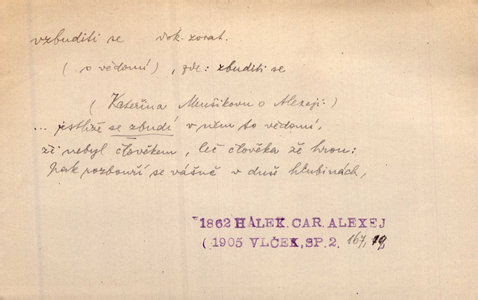 vzbuditi se dok. zorat.
(o vědomí), zde: zbuditi se
(Kateřina Menšikovu o Alexeji:)
... jestliže se zbudí v něm to vědomí,
že nebyl člověkem, leč člověka že hrou:
pak rozbouří se vášně v duše hlubinách,
1862 HÁLEK. CAR. ALEXEJ
(1905 VLČEK, SP. 2. 167, 19)